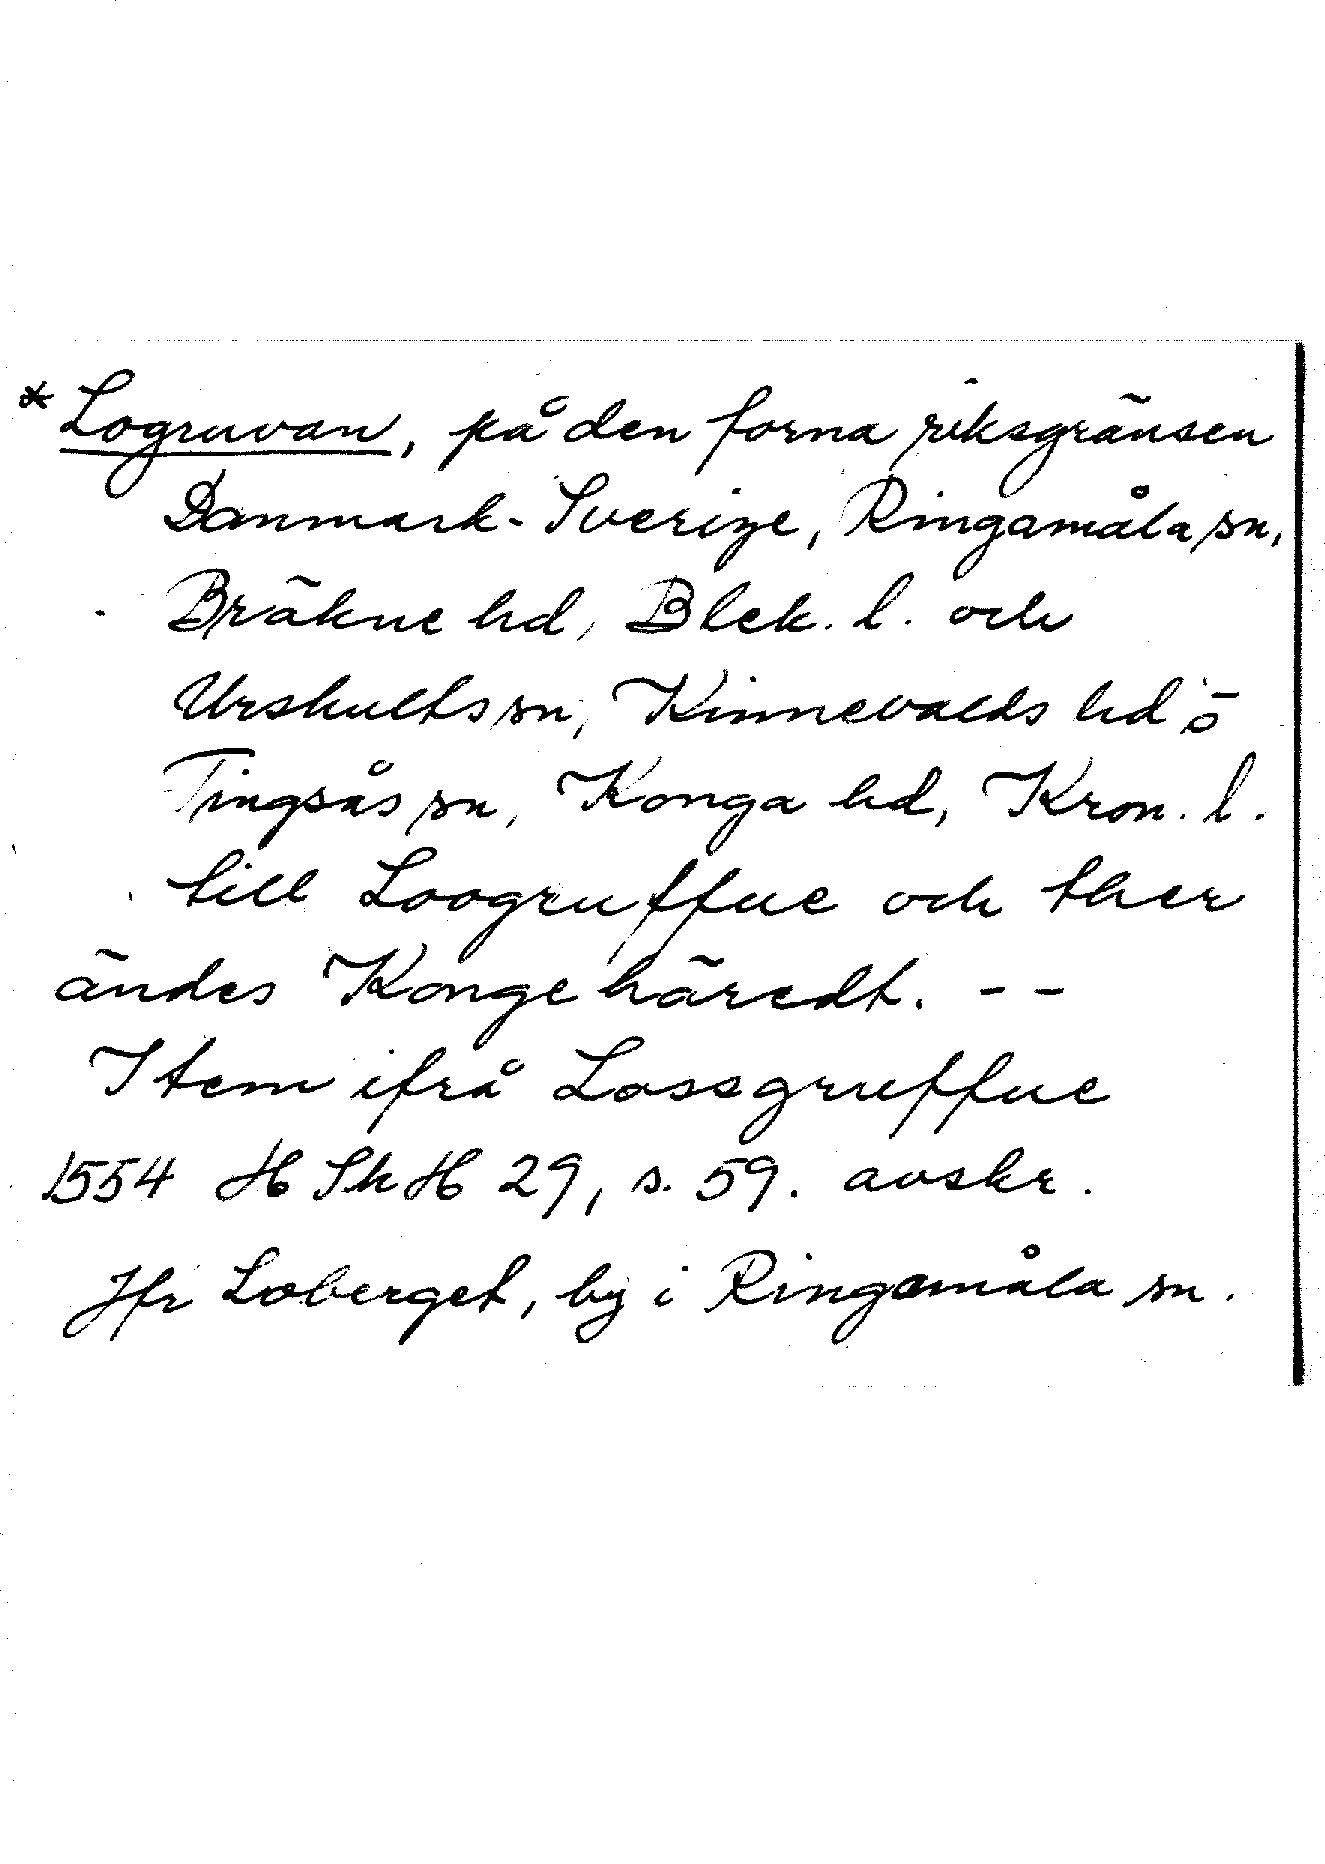 * Logruvan, på den forna riksgränsen
Danmark-Sverige, Ringamåla sn,
Bräkne hd, Blek. l. och
Urshults sn, Kinnevalds hd o
Tingsås sn, Konga hd, Kron. l.
till Loogruffue och ther
ändes Konge häredt. - -
Item ifrå Lossgruffue
1554 HSkH 29, s. 59. avskr.
Jfr Loberget, by i Ringamåla sn.